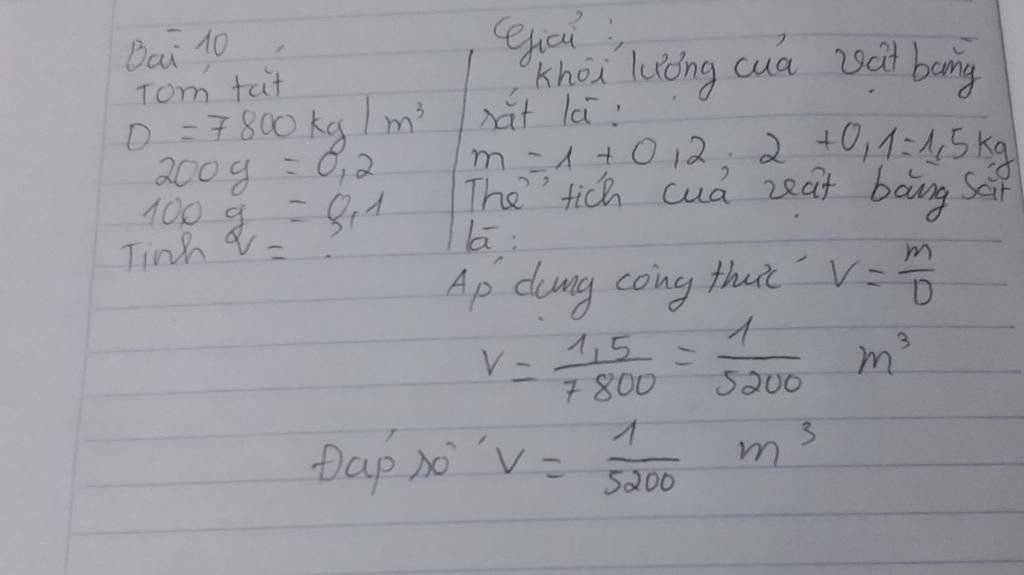 Bài 10
Tóm tắt
D = 7800 kg / m³
200g = 0,2
100 g = 0,1
Tính V = ?
Giải :
Khối lượng của vật bằng
sắt là :
m = 1 + 0,2 . 2 + 0,1 = 1,5 kg
Thể tích của vật bằng sắt
là :
Áp dụng công thức V = m/D
V = 1,5/7800 = 1/5200 m³
Đáp số V = 1/5200 m³